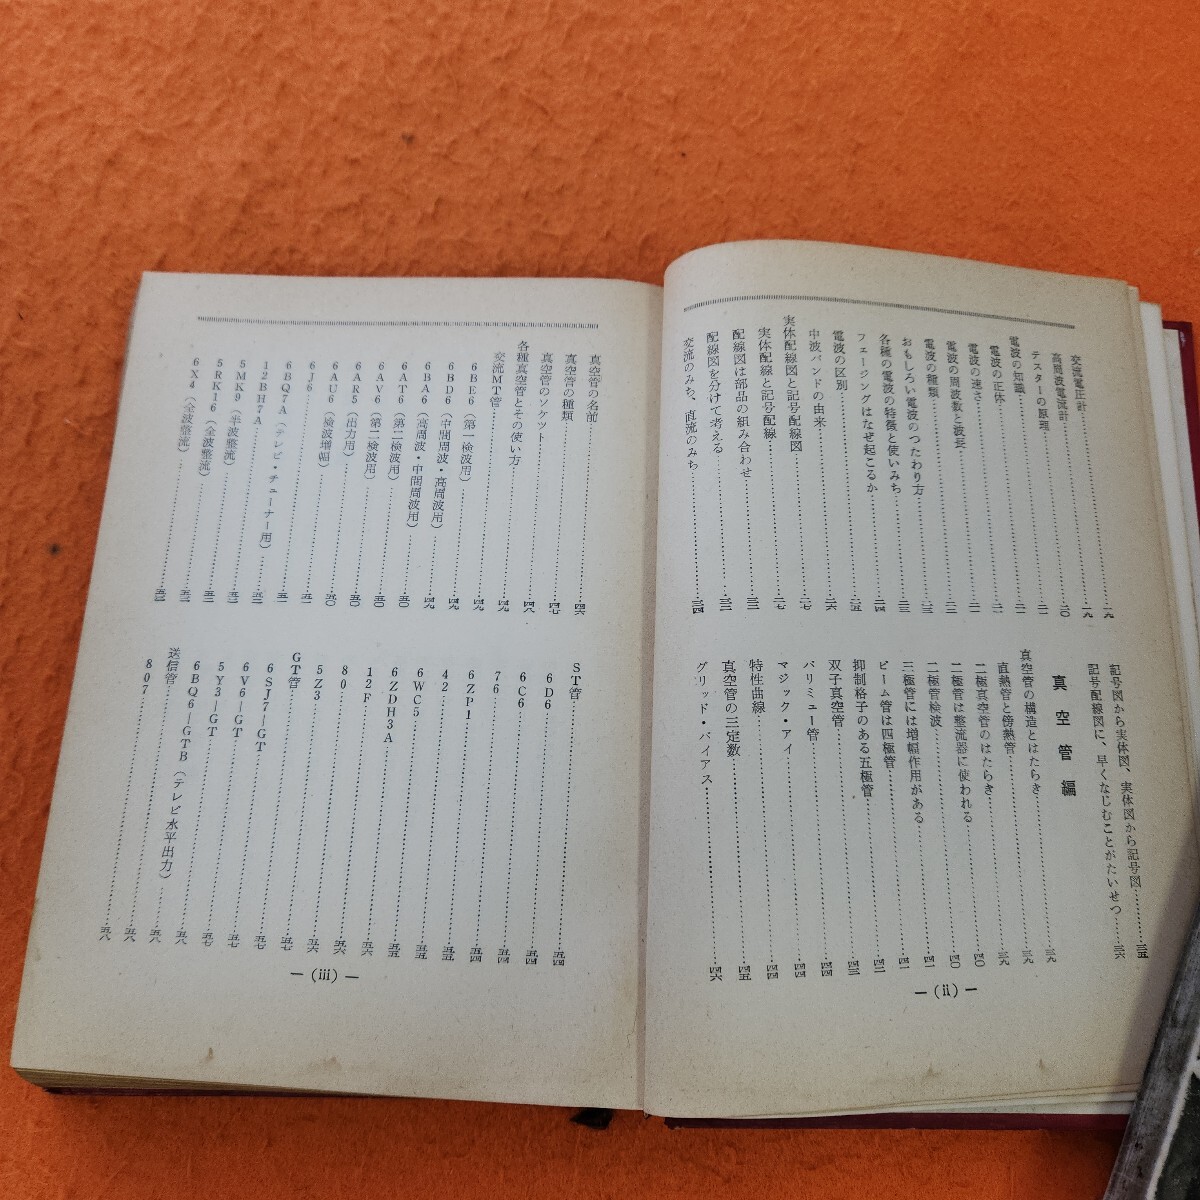 交流電圧計……一九
高周波電流計……一九
テスターの原理……二〇
電波の知識……二一
電波の正体……二一
電波の速さ……二一
電波の周波数と波長……二二
電波の種類……二三
おもしろい電波のつたわり方……二三
各種の電波の特徴と使いみち……二四
フェージングはなぜ起こるか……二五
電波の区別……二六
中波バンドの由来……二七
実体配線図と記号配線図……二七
実体配線と記号配線
配線図は部品の組み合わせ
配線図を分けて考える
交流のみち、直流のみち……三四
記号図から実体図、実体図から記号図……三五
記号配線図に、早くなじむことがたいせつ……三六
真空管編
真空管の構造とはたらき……三九
直熱管と傍熱管……三九
二極真空管のはたらき……三九
二極管は整流器に使われる……四〇
二極管検波……四〇
三極管には増幅作用がある……四一
ビーム管は四極管……四二
抑制格子のある五極管……四三
双子真空管……四四
バリミュー管……四四
マジック・アイ……四四
特性曲線……四五
真空管の三定数……四五
グリッド・バイアス……四六
— (ii) —
真空管の名前……四六
真空管の種類……四七
真空管のソケット……四八
各種真空管とその使い方
交流MT管……四九
6BE6(第一検波用)……四九
6BD6(中間周波・高周波用)……四九
6BA6(高周波・中間周波用)……四九
6AT6(第二検波用)……五〇
6AV6(第二検波用)……五〇
6AR5(出力用)……五〇
6AU6(検波増幅)……五〇
6J6……五一
6BQ7A(テレビ・チューナー用)……五一
12BH7A
5MK9(半波整流)
5RK16(全波整流)
6X4(全波整流)
ST管……五四
6D6……五四
6C6……五四
76……五四
6ZP1……五四
42……五五
6WC5……五五
6ZDH3A……五五
12F……五六
80……五六
5Z3……五六
GT管……五七
6SJ7—GT……五七
6V6—GT……五七
5Y3—GT……五七
6BQ6—GTB(テレビ水平出力)……五八
送信管……五八
807……五八
— (iii) —